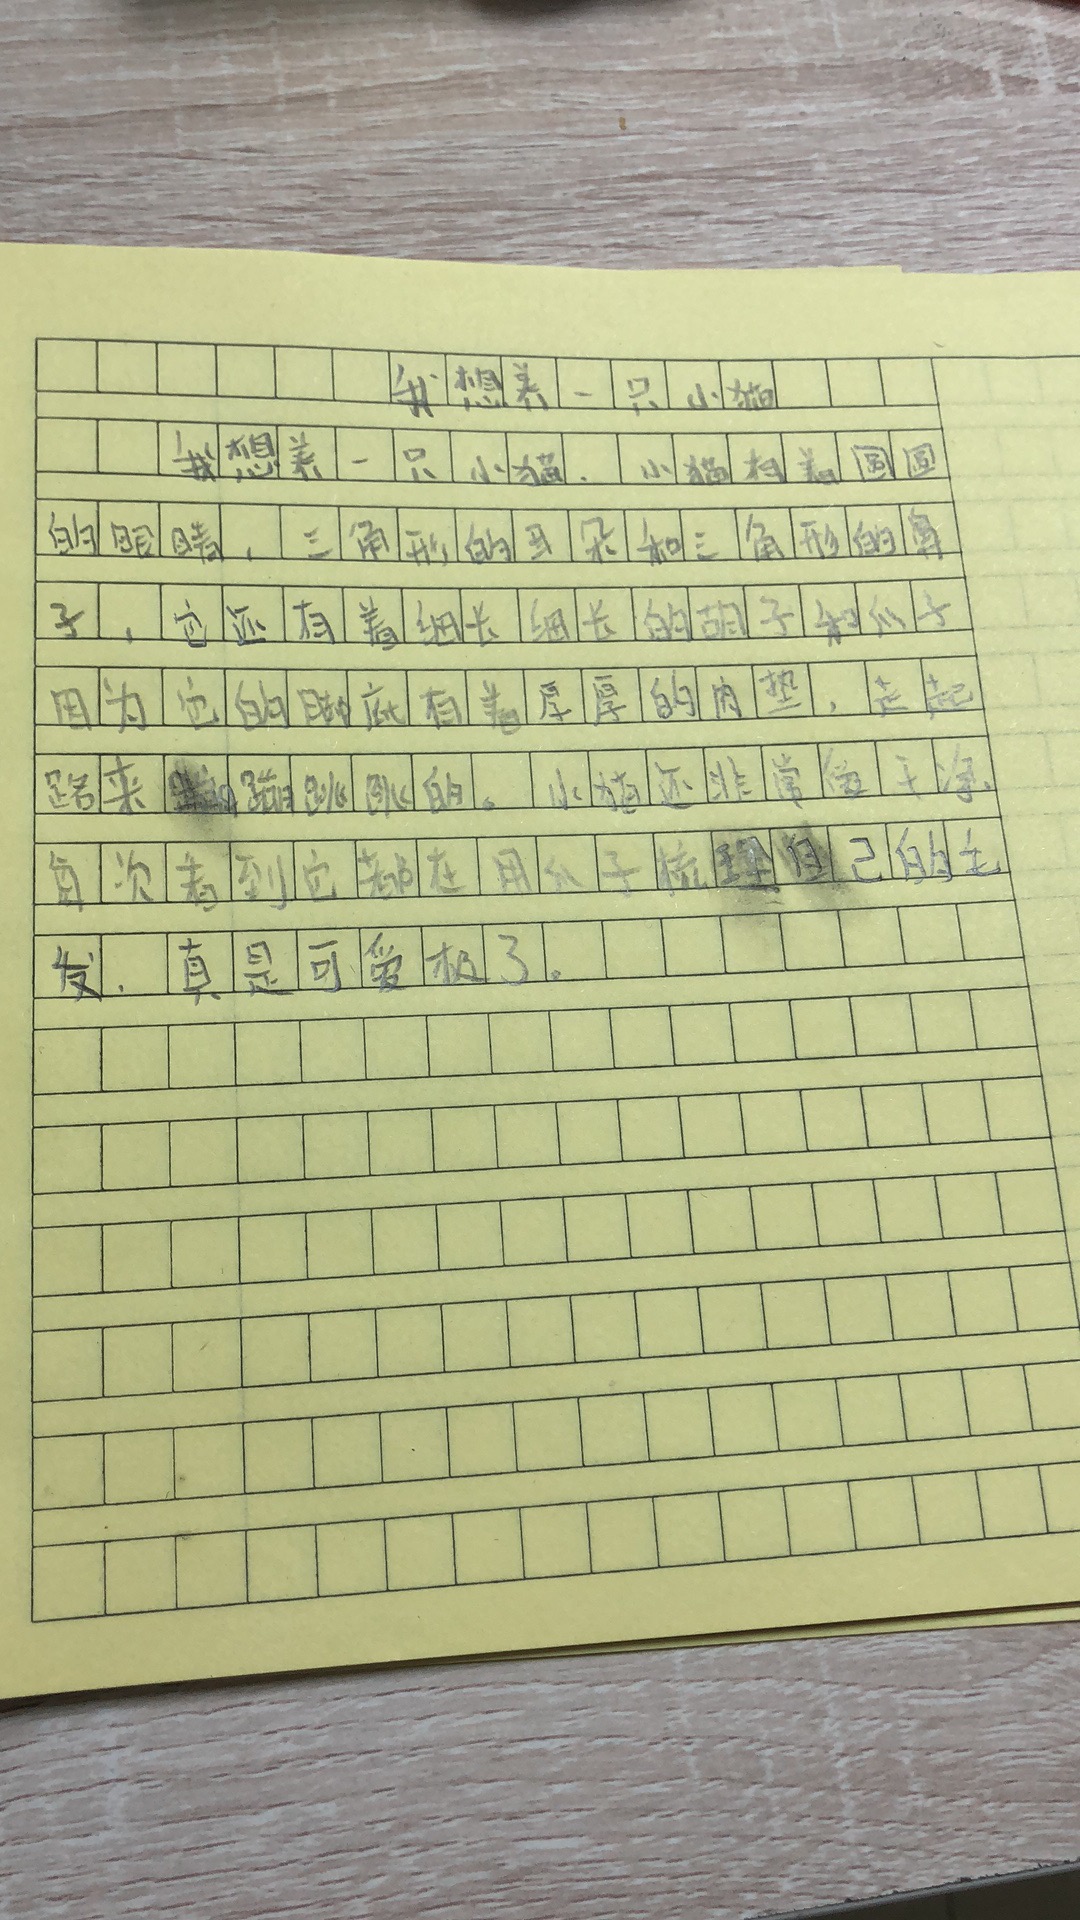 我想养一只小猫
我想养一只小猫.小猫有着圆圆
的眼睛,三角形的耳朵和三角形的鼻
子,它还有着细长细长的胡子和爪子
因为它的脚底有着厚厚的肉垫,走起
路来蹦蹦跳跳的。小猫还非常爱干净.
每次看到它都在用爪子梳理自己的毛
发.真是可爱极了。